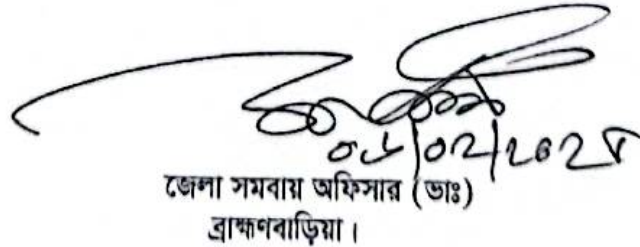 ০৬/০২/২০২৫
জেলা সমবায় অফিসার (ভাঃ)
ব্রাহ্মণবাড়িয়া।